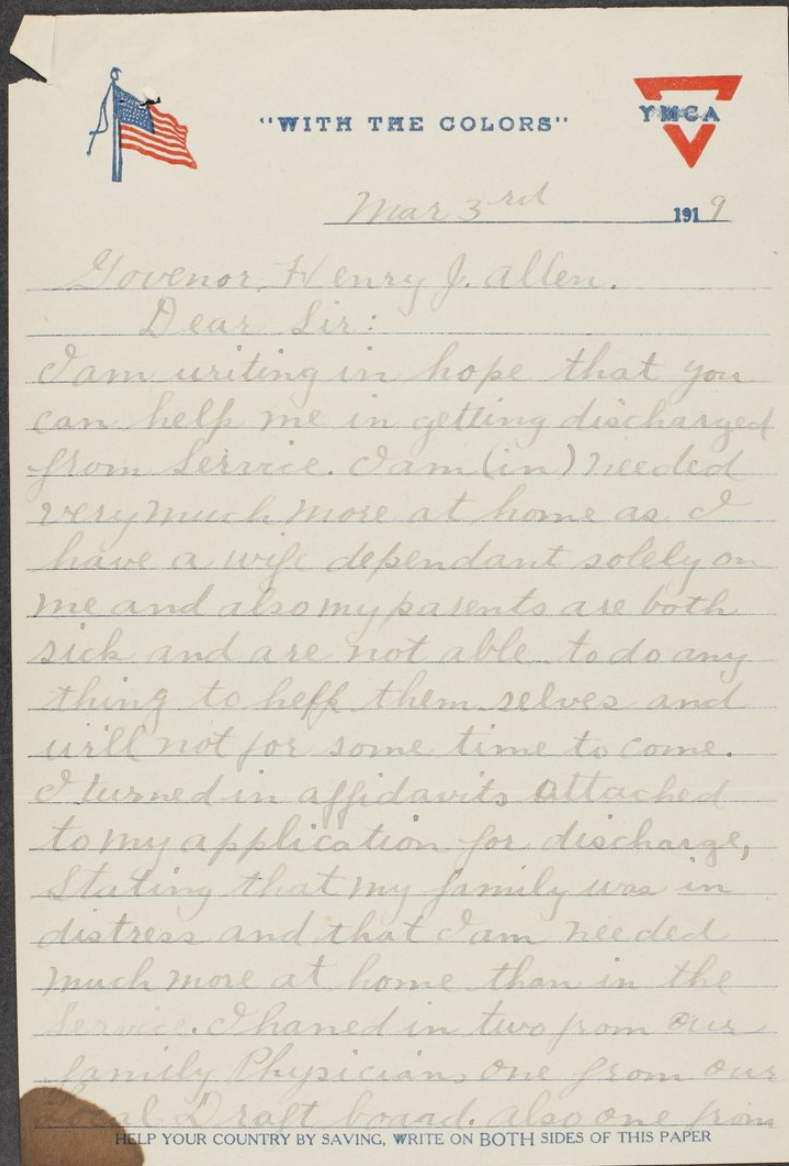 "WITH THE COLORS"
YMCA
Mar 3rd 1919
Govenor, Henry J. Allen.
Dear Sir:
I am writing in hope that you
can help me in getting discharged
from Service. I am (in) needed
very much more at home as I
have a wife dependant solely on
me and also my parents are both
sick and are not able to do any
thing to help them selves and
will not for some time to come.
I turned in affidavits attached
to my application for discharge,
Stating that my family was in
distress and that I am needed
much more at home than in the
Service. I haned in two from our
family Physicians one from our
Local Draft board. also one from
HELP YOUR COUNTRY BY SAVING, WRITE ON BOTH SIDES OF THIS PAPER